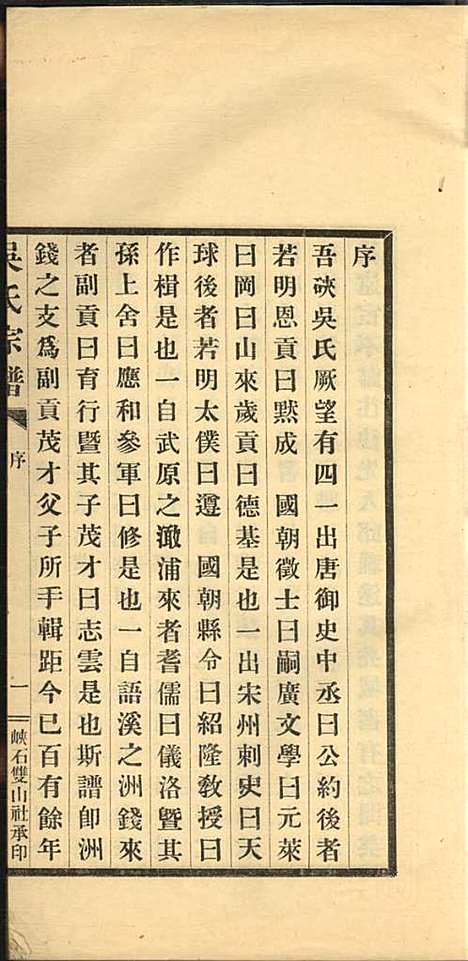 序
吾硤吳氏厥望有四一出唐御史中丞曰公約後者
若明恩貢曰黙成　國朝徵士曰嗣廣文學曰元萊
曰岡曰山來歲貢曰德基是也一出宋州刺史曰天
球後者若明太僕曰遵　國朝縣令曰紹隆敎授曰
作楫是也一自武原之澉浦來者耆儒曰儀洛曁其
孫上舍曰應和參軍曰修是也一自語溪之洲錢來
者副貢曰育行曁其子茂才曰志雲是也斯譜卽洲
錢之支爲副貢茂才父子所手輯距今已百有餘年
吳氏宗譜
序
一
峽石雙山社承印